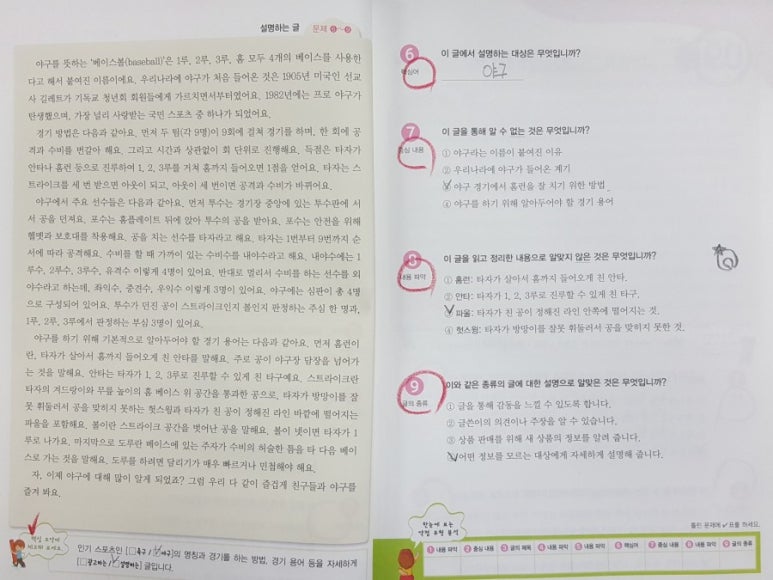 설명하는 글 문제 6~9
야구를 뜻하는 '베이스볼(baseball)'은 1루, 2루, 3루, 홈 모두 4개의 베이스를 사용한
다고 해서 붙여진 이름이에요. 우리나라에 야구가 처음 들어온 것은 1905년 미국인 선교
사 길레트가 기독교 청년회 회원들에게 가르치면서부터였어요. 1982년에는 프로 야구가
탄생했으며, 가장 널리 사랑받는 국민 스포츠 중 하나가 되었어요.
경기 방법은 다음과 같아요. 먼저 두 팀(각 9명)이 9회에 걸쳐 경기를 하며, 한 회에 공
격과 수비를 번갈아 해요. 그리고 시간과 상관없이 회 단위로 진행해요. 득점은 타자가
안타나 홈런 등으로 진루하여 1, 2, 3루를 거쳐 홈까지 들어오면 1점을 얻어요. 타자는 스
트라이크를 세 번 받으면 아웃이 되고, 아웃이 세 번이면 공격과 수비가 바뀌어요.
야구에서 주요 선수들은 다음과 같아요. 먼저 투수는 경기장 중앙에 있는 투수판에 서
서 공을 던져요. 포수는 홈플레이트 뒤에 앉아 투수의 공을 받아요. 포수는 안전을 위해
헬멧과 보호대를 착용해요. 공을 치는 선수를 타자라고 해요. 타자는 1번부터 9번까지 순
서에 따라 공격해요. 수비를 할 때 가까이 있는 수비수를 내야수라고 해요. 내야수에는 1
루수, 2루수, 3루수, 유격수 이렇게 4명이 있어요. 반대로 멀리서 수비를 하는 선수를 외
야수라고 하는데, 좌익수, 중견수, 우익수 이렇게 3명이 있어요. 야구에는 심판이 총 4명
으로 구성되어 있어요. 투수가 던진 공이 스트라이크인지 볼인지 판정하는 주심 한 명과,
1루, 2루, 3루에서 판정하는 부심 3명이 있어요.
야구를 하기 위해 기본적으로 알아두어야 할 경기 용어는 다음과 같아요. 먼저 홈런이
란, 타자가 살아서 홈까지 들어오게 친 안타를 말해요. 주로 공이 야구장 담장을 넘어가
는 것을 말해요. 안타는 타자가 1, 2, 3루로 진루할 수 있게 친 타구예요. 스트라이크란
타자의 겨드랑이와 무릎 높이의 홈 베이스 위 공간을 통과한 공으로, 타자가 방망이를 잘
못 휘둘러서 공을 맞히지 못하는 헛스윙과 타자가 친 공이 정해진 라인 바깥에 떨어지는
파울을 포함해요. 볼이란 스트라이크 공간을 벗어난 공을 말해요. 볼이 넷이면 타자가 1
루로 나가요. 마지막으로 도루란 베이스에 있는 주자가 수비의 허술한 틈을 타 다음 베이
스로 가는 것을 말해요. 도루를 하려면 달리기가 매우 빠르거나 민첩해야 해요.
자, 이제 야구에 대해 많이 알게 되었죠? 그럼 우리 다 같이 즐겁게 친구들과 야구를
즐겨 봐요.
핵심 요약에
체크해 보세요.
인기 스포츠인 [□축구 / □야구]의 명칭과 경기를 하는 방법, 경기 용어 등을 자세하게
[□광고하는 / □설명하는] 글입니다.
6 이 글에서 설명하는 대상은 무엇입니까?
핵심어
야구
7 이 글을 통해 알 수 없는 것은 무엇입니까?
중심 내용
① 야구라는 이름이 붙여진 이유
② 우리나라에 야구가 들어온 계기
③ 야구 경기에서 홈런을 잘 치기 위한 방법
④ 야구를 하기 위해 알아두어야 할 경기 용어
8 이 글을 읽고 정리한 내용으로 알맞지 않은 것은 무엇입니까?
내용 파악
① 홈런: 타자가 살아서 홈까지 들어오게 친 안타.
② 안타: 타자가 1, 2, 3루로 진루할 수 있게 친 타구.
③ 파울: 타자가 친 공이 정해진 라인 안쪽에 떨어지는 것.
④ 헛스윙: 타자가 방망이를 잘못 휘둘러서 공을 맞히지 못한 것.
9 이와 같은 종류의 글에 대한 설명으로 알맞은 것은 무엇입니까?
글의 종류
① 글을 통해 감동을 느낄 수 있도록 합니다.
② 글쓴이의 의견이나 주장을 알 수 있습니다.
③ 상품 판매를 위해 새 상품의 정보를 알려 줍니다.
④ 어떤 정보를 모르는 대상에게 자세하게 설명해 줍니다.
한눈에 보는
틀린 문제에 ✓표를 하세요.
1 내용 파악 2 중심 내용 3 글의 제목 4 내용 파악 5 내용 파악 6 핵심어 7 중심 내용 8 내용 파악 9 글의 종류